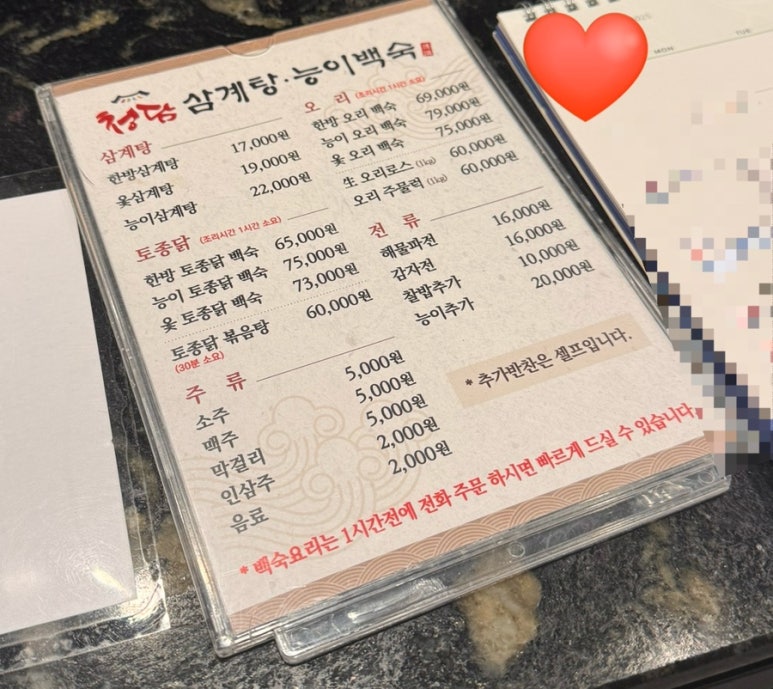 청담 삼계탕·능이백숙
삼계탕
한방삼계탕 17,000원
옻삼계탕 19,000원
능이삼계탕 22,000원
토종닭 (조리시간 1시간 소요)
한방 토종닭 백숙 65,000원
능이 토종닭 백숙 75,000원
옻 토종닭 백숙 73,000원
토종닭 볶음탕 60,000원
(30분 소요)
주 류
소주 5,000원
맥주 5,000원
막걸리 5,000원
인삼주 2,000원
음료 2,000원
오 리 (조리시간 1시간 소요)
한방 오리 백숙 69,000원
능이 오리 백숙 79,000원
옻 오리 백숙 75,000원
生 오리로스 (1kg) 60,000원
오리 주물럭 (1kg) 60,000원
전 류
해물파전 16,000원
감자전 16,000원
찰밥추가 10,000원
능이추가 20,000원
* 추가반찬은 셀프입니다.
* 백숙요리는 1시간전에 전화 주문 하시면 빠르게 드실 수 있습니다.
2025
MON TUE